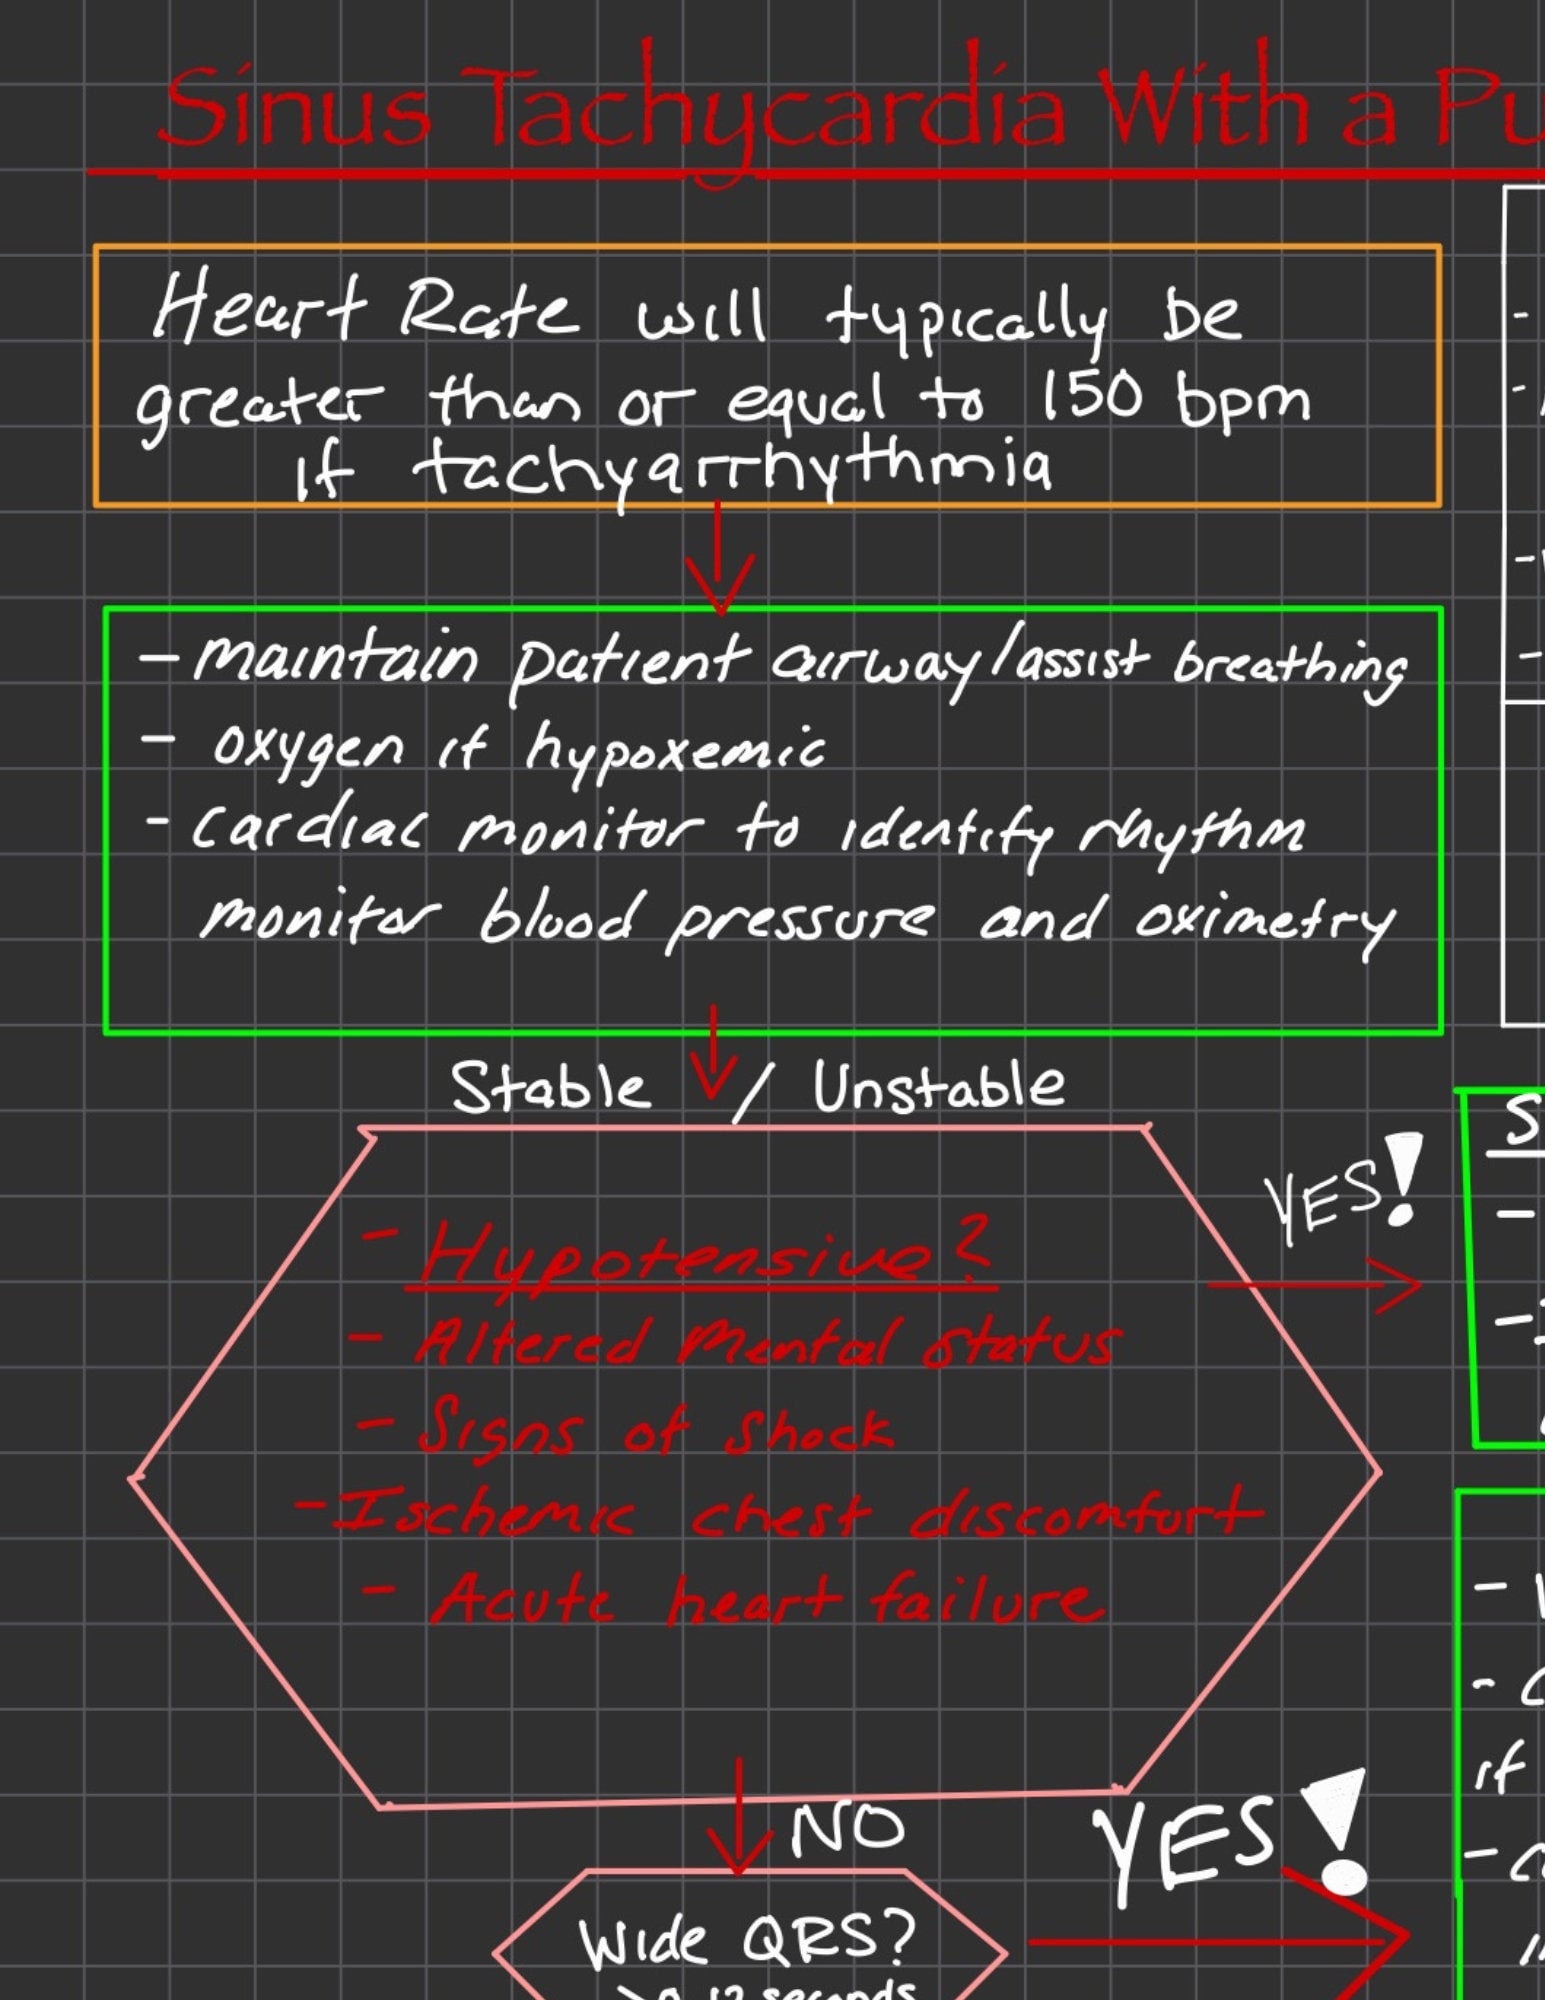 Sinus Tachycardia With a
Heart Rate will typically be
greater than or equal to 150 bpm
if tachyarrhythmia
- maintain patient airway/assist breathing
- oxygen if hypoxemic
- cardiac monitor to identify rhythm
monitor blood pressure and oximetry
Stable / Unstable
- Hypotensive?
- Altered Mental status
- Signs of shock
- Ischemic chest discomfort
- Acute heart failure
YES!
NO
YES!
Wide QRS?
if